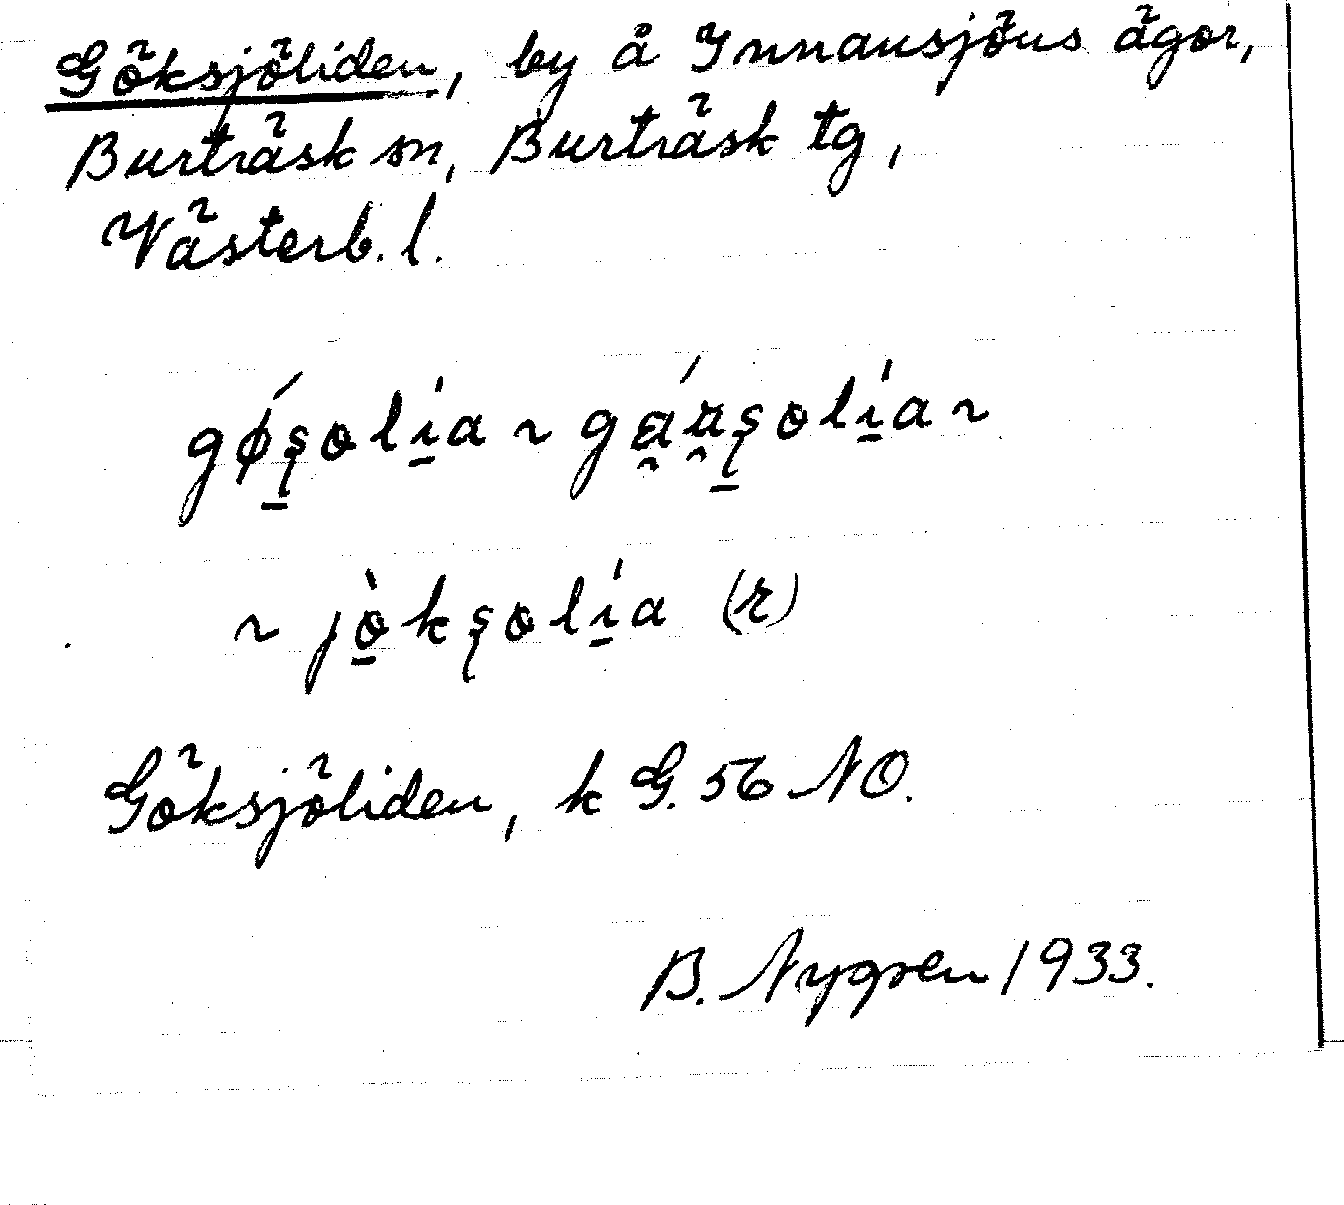 Göksjöliden, by å Innansjöns ägor,
Burträsk sn, Burträsk tg,
Västerb. l.
gǿʂolı̱́a ~ gáʉʂolı̱́a ~
~ jò̱kʂolı̱́a (r)
Göksjöliden, k G. 56 NO.
B. Nygren 1933.